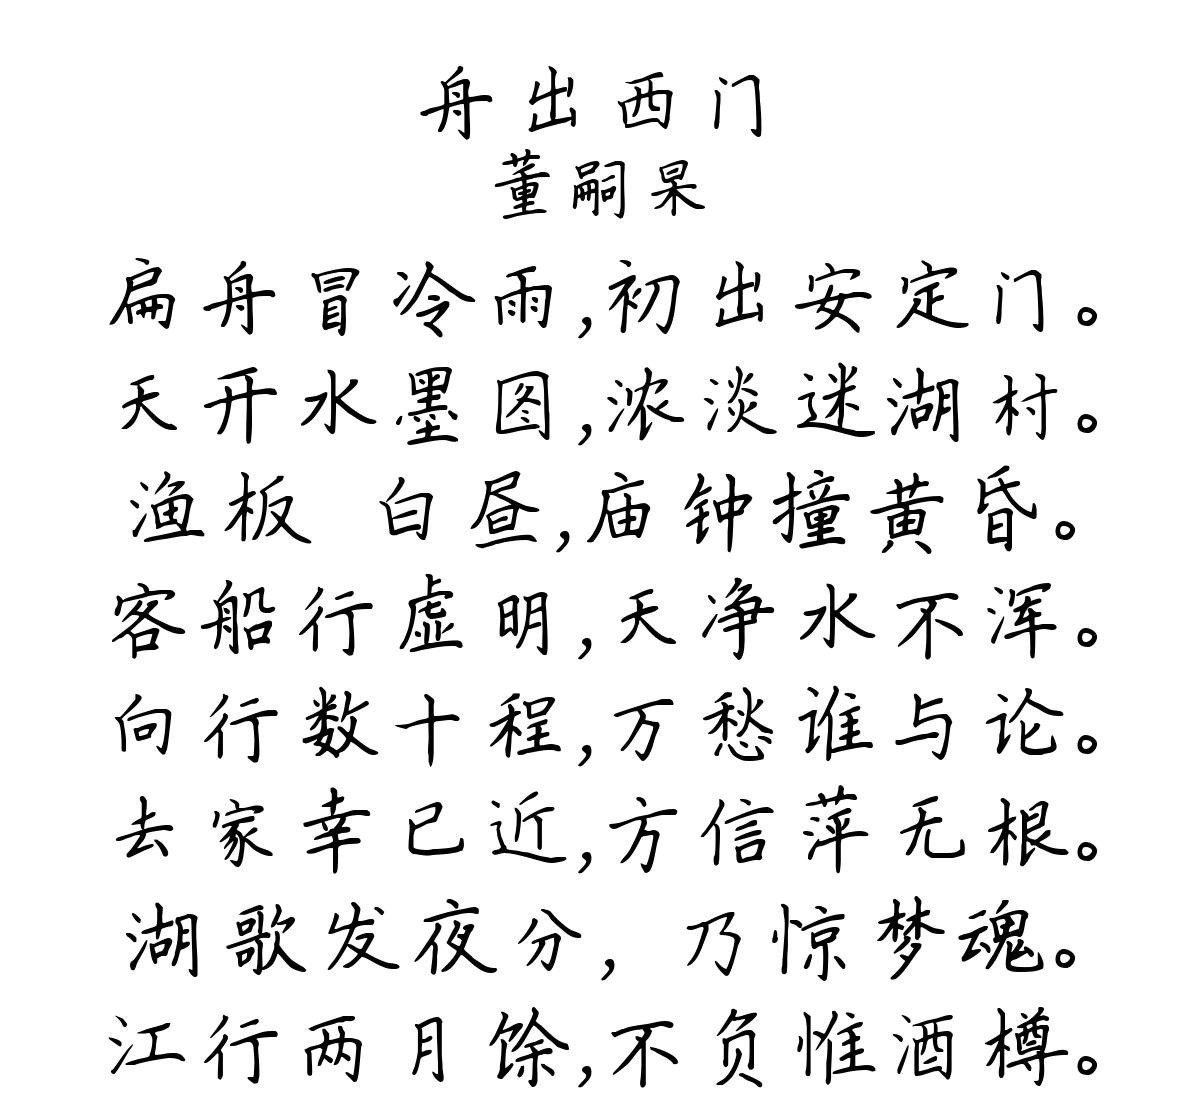 舟出西门
董嗣杲
扁舟冒冷雨,初出安定门。
天开水墨图,浓淡迷湖村。
渔板 白昼,庙钟撞黄昏。
客船行虚明,天净水不浑。
向行数十程,万愁谁与论。
去家幸已近,方信萍无根。
湖歌发夜分, 乃惊梦魂。
江行两月馀,不负惟酒樽。